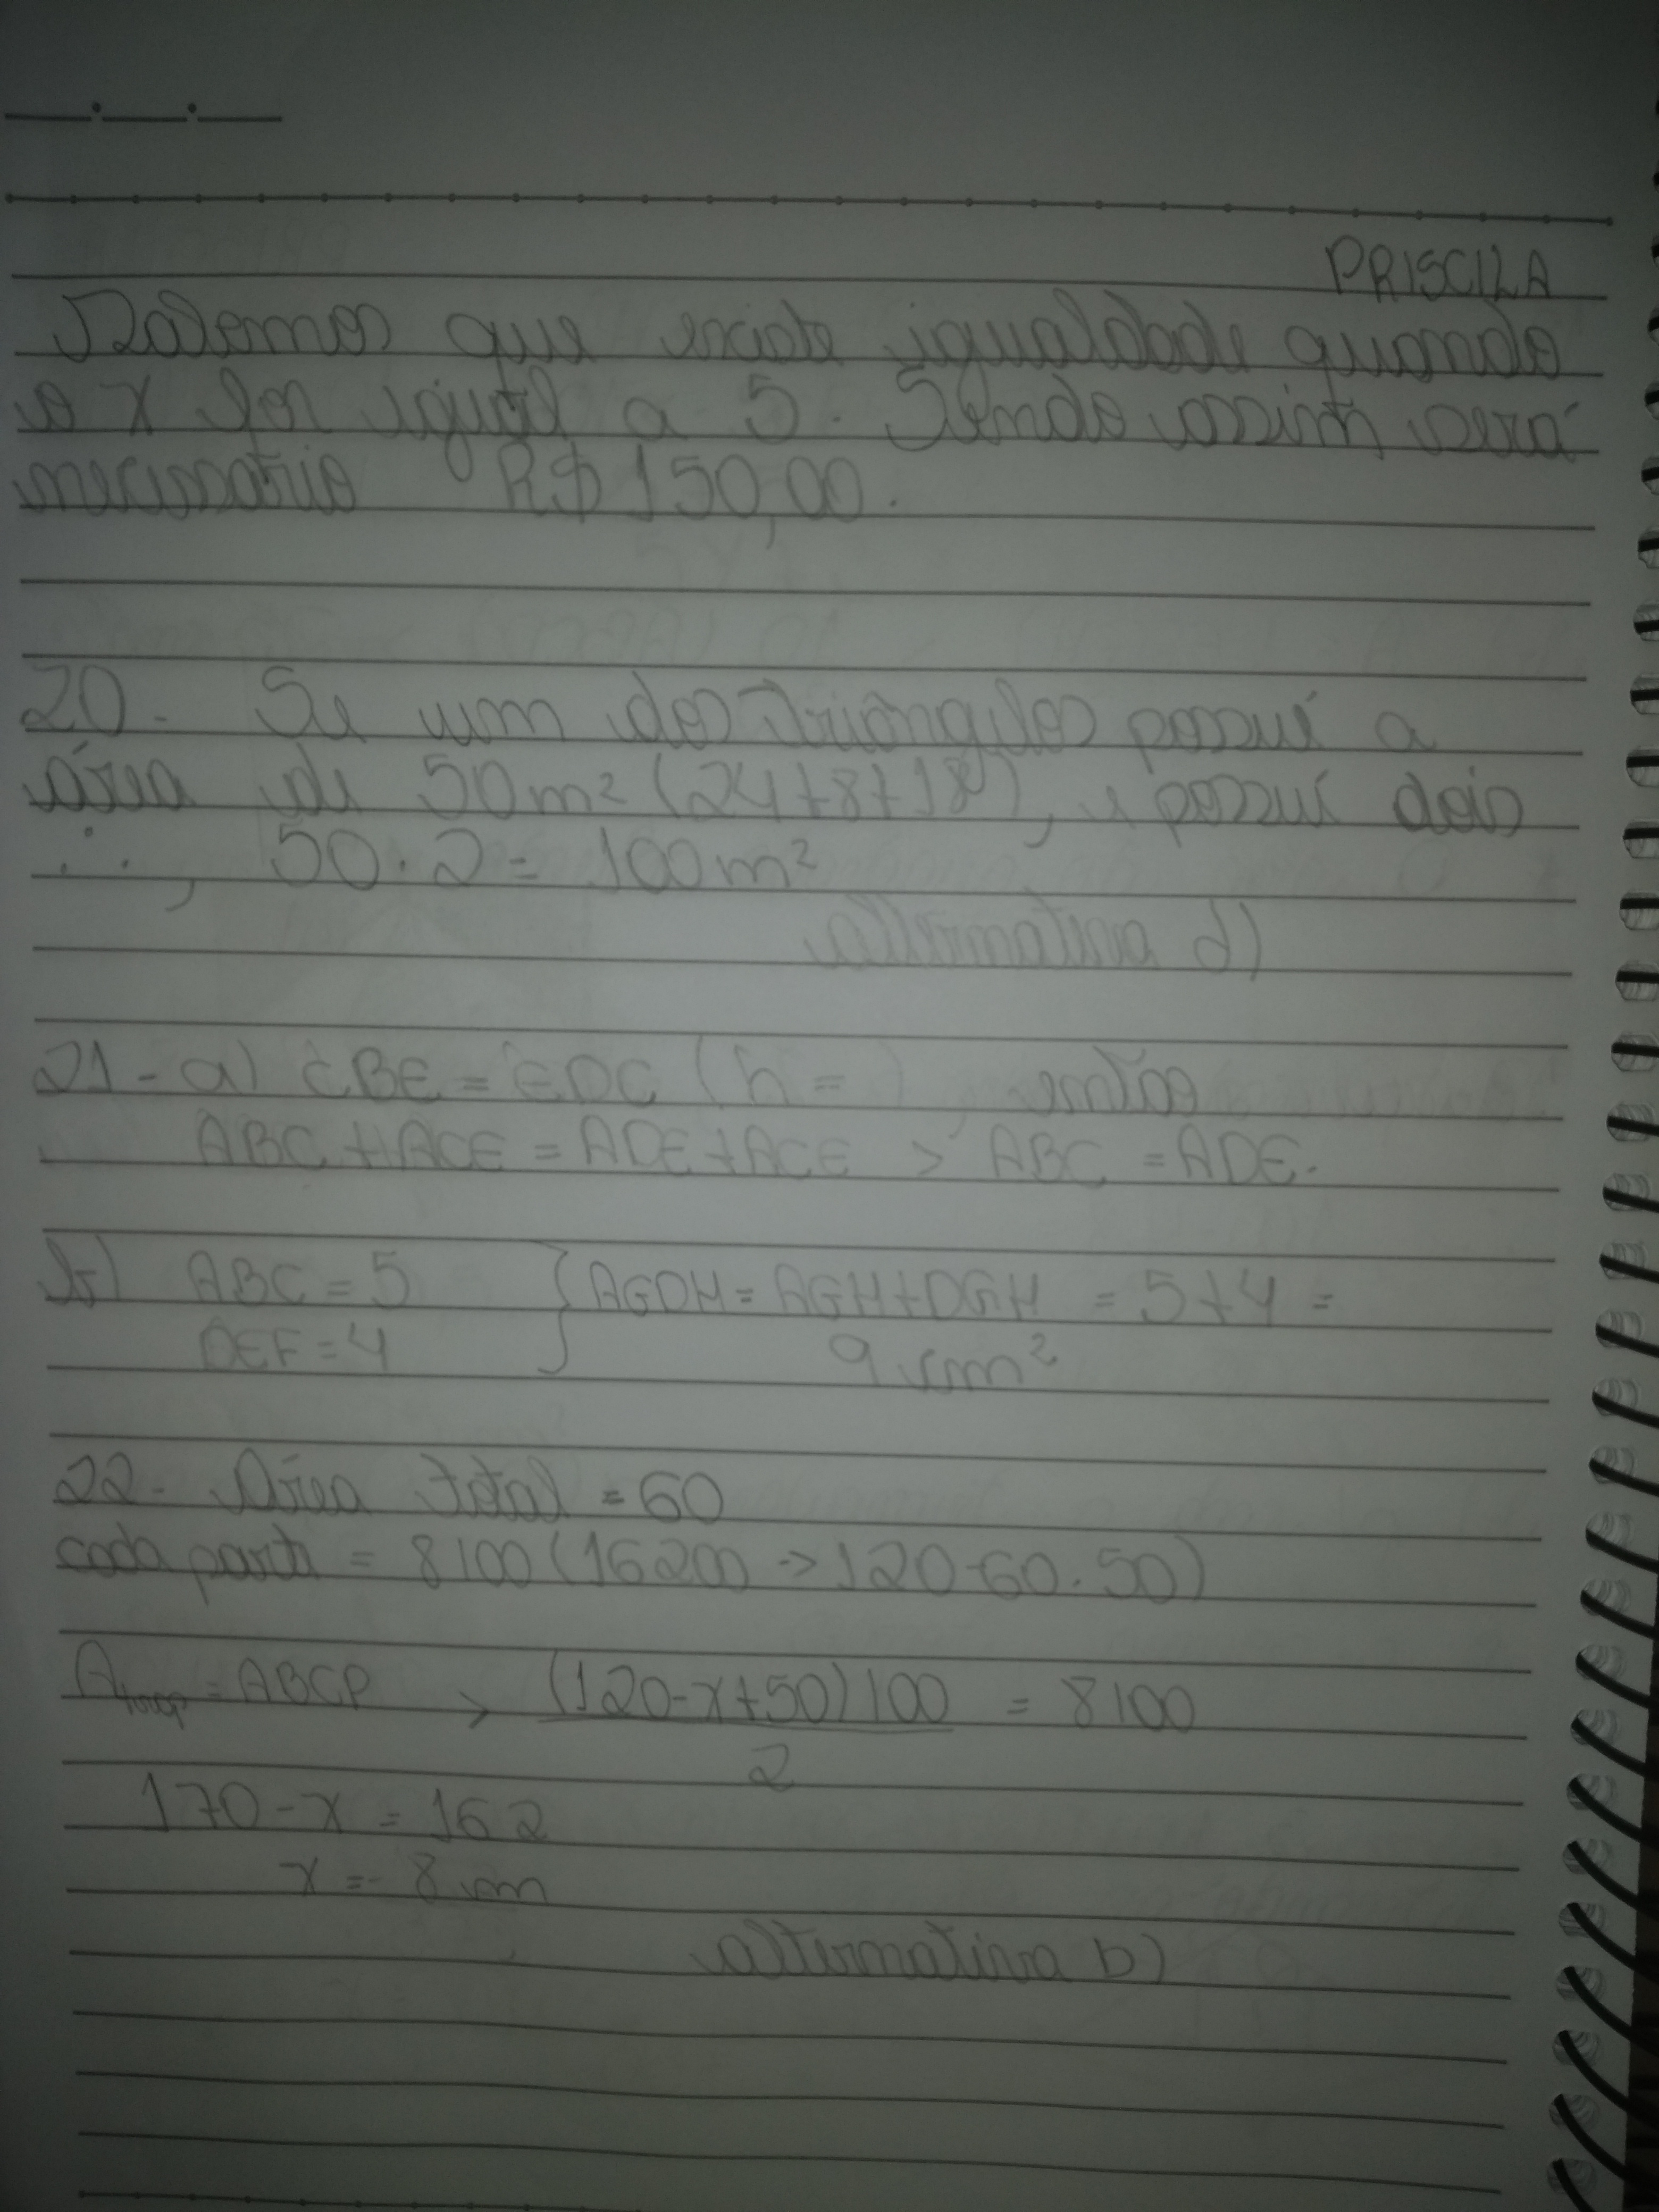 PRISCILA
Sabemos que existe igualdade quando
o x for igual a 5. Sendo assim será
necessário R$ 150,00.
20- Se um dos triângulos possui a
área de 50m² (24+8+18), e possui dois
∴, 50.2 = 100m²
alternativa d)
21- a) CBE = EDC (h = ), então
ABC + ACE = ADE + ACE > ABC = ADE.
b) ABC = 5 } AGDH = AGH + DGH = 5+4 =
DEF = 4 9 cm²
22- Área total = 60
cada parte = 8100 (16200 -> 120-60.50)
A trap = ABCP > (120-x+50)100 = 8100
2
170-x = 162
x = 8 cm
alternativa b)